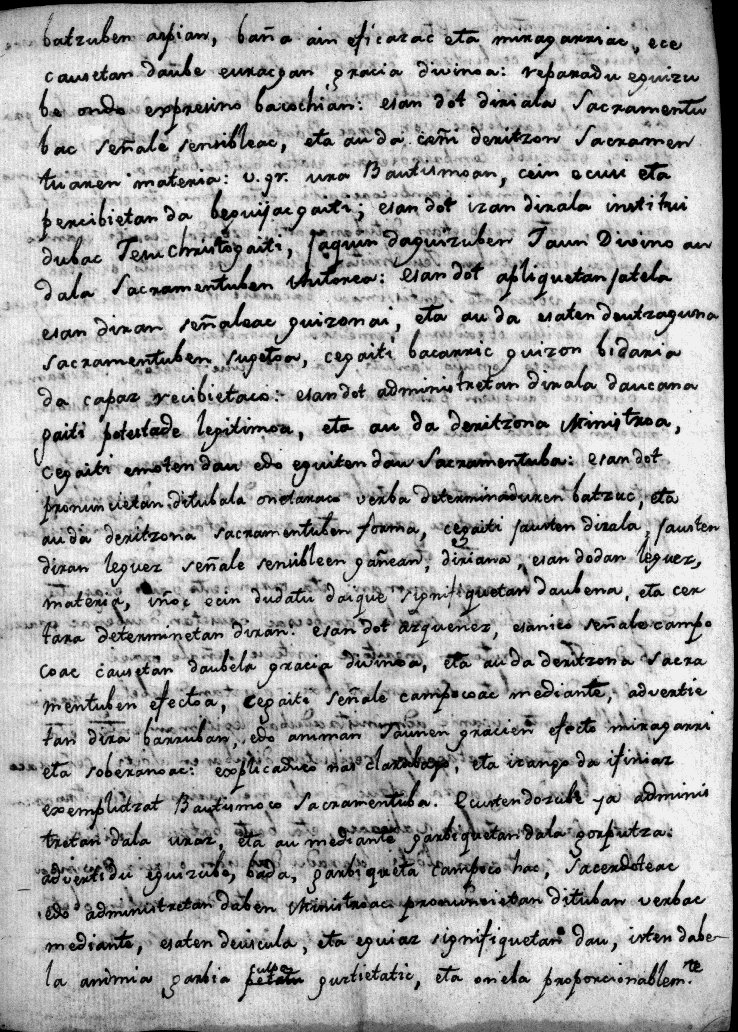 batzuben azpian, baña ain eficazac eta miragarriac, ece
causetan daube euracgan gracia divinoa: reparadu eguizu
be ondo expresino bacochian: esan dot diriala Sacramentu
bac señale sensibleac, eta au da ceñi deritzon Sacramen
tuaren materia: v.gr. ura Bautismoan, cein ecusi eta
percibietan da beguijacgaiti; esan dot izan dirala institui
dubac Jesuchristogaiti, jaquin daguizuben Jaun Divino au
dala Sacramentuben Autorea: esan dot apliquetan jatela
esan diran señaleac guizonai, eta au da esaten deutzaguna
Sacramentuben sugetoa, cegaiti bacarric guizon bidaria
da capaz recibietaco: esan dot administretan dirala daucana
gaiti potestade legitimoa, eta au da deritzona Ministroa,
cegaiti emoten dau edo eguiten dau Sacramentuba: esan dot
pronuncietan ditubala onetaraco verba determinaduren batzuc, eta
au da deritzona sacramentuben forma, cegaiti jausten dirala, jausten
diran leguez señale sensibleen gañean, ez diriana, esan dodan leguez,
materia, iñoc ecin dudatu daique signifiquetan daubena, eta cer
tara determinetan diran: esan dot azquenez, esanico señale campo
coac causetan daubela gracia divinoa, eta au da deritzona Sacra
mentuben efectoa, cegaiti señale campocoac mediante, advertie
tan dira barruban, edo animan Jaunen gracien efecto miragarri
eta soberanoac: explicaduco nas clarubago, eta izango da ifiniaz
exemplutzat Bautismoco Sacramentuba. Ecusten dozube ya adminis
tretan dala uraz, eta au mediante garbiquetan dala gorputza:
advertidu eguizube, bada, garbiqueta campoco hac, Sacerdoteac
edo administretan daben Ministroac pronuncietan dituban verbac
mediante, esaten deuscula, eta eguiaz signifiquetan dau, isten dabe
la animia garbia culpa gustietatic, eta onela proporcionablem.te